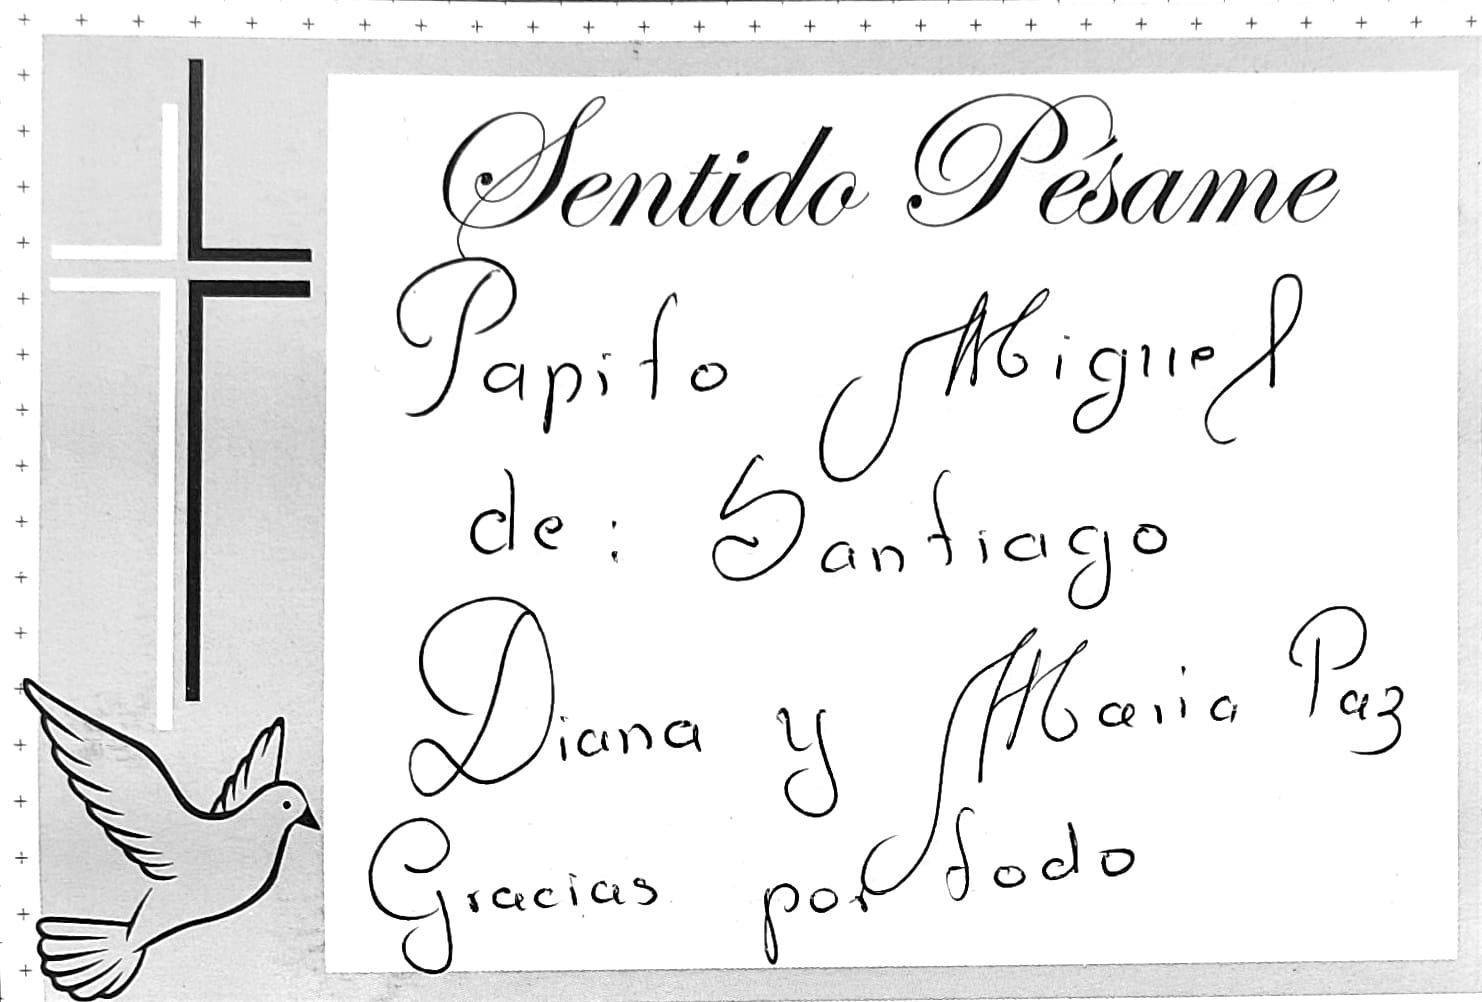 Sentido Pésame
Papito Miguel
de: Santiago
Diana y Maria Paz
Gracias por todo